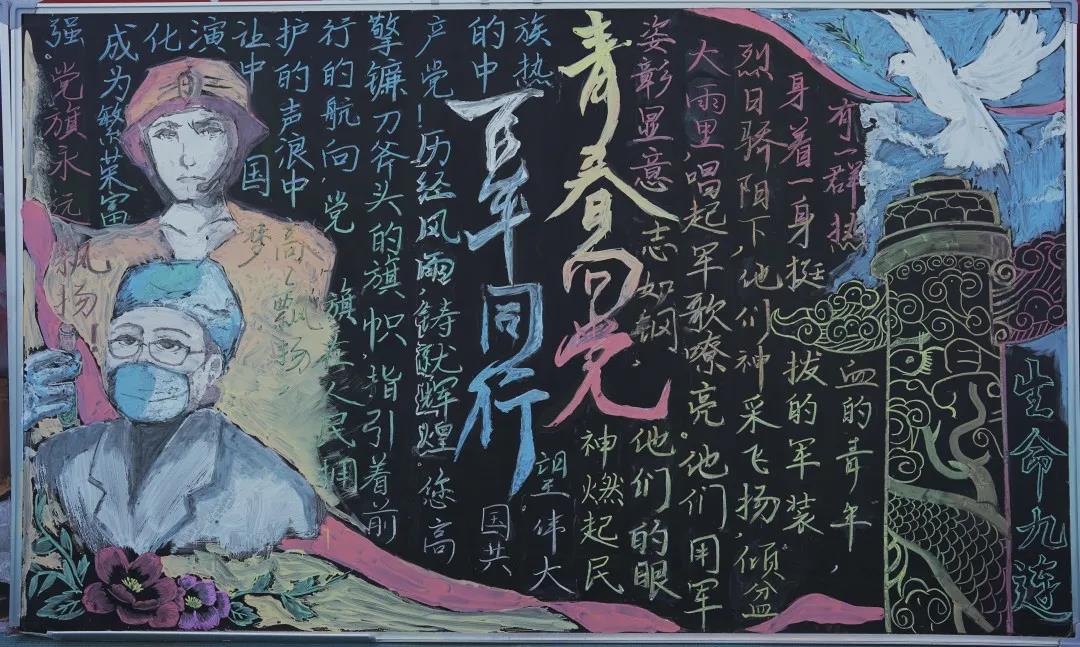 青春向党
百年同行
有一群热血的青年，
身着一身挺拔的军装
烈日骄阳下,他们神采飞扬,倾盆
大雨里,唱起军歌嘹亮。他们用军
姿彰显意志如钢,他们的眼
神燃起民
族热望伟大
的中国共
产党!历经风雨,铸就辉煌,您高
擎镰刀斧头的旗帜,指引着前
行的航向,党旗在人民拥
护的声浪中高々飘扬
让中国梦
演
化
成为繁荣富
强。党旗永远飘扬!
生命九连